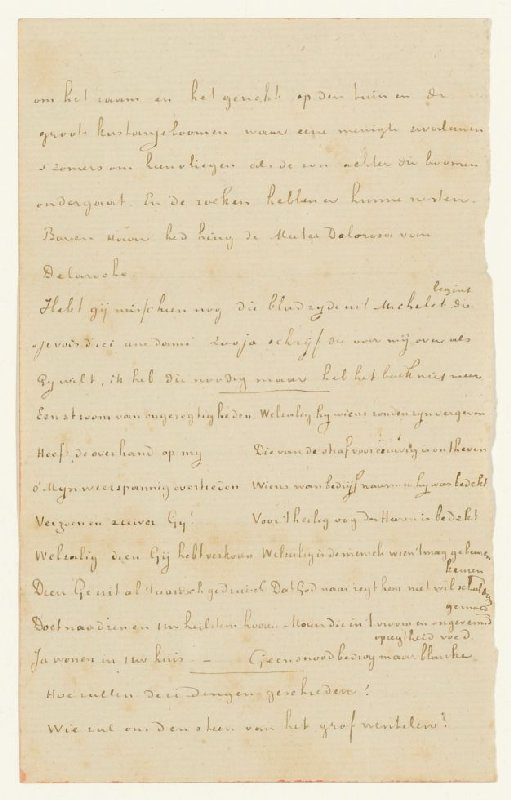 om het raam en het gericht op den tuin en de
groote kastanjeboomen waar eene menigte zwaluwen
's zomers om heen vliegen als de zon achter die boomen
ondergaat. En de roeken hebben er hunne nesten.
Boven Haar bed hing de Mater Dolorosa van
Delaroche.
Hebt gij misschien nog die bladzyde uit Michelet die begint
Je vois d'ici une dame Zoo ja schrijf die voor mij over als
Gij wilt, ik heb die noodig maar heb het boek niet meer
Een stroom van ongeregtigheden Welzalig hy wiens zonden zyn vergeven
Heeft de overhand op my Die van de straf voor eeuwig is ontheven
O Mijn weerspannig overtreden Wiens wanbedryf waarmee hy was bedekt
Verzoenen zeuver Gij! Voor 't heilig oog des Heeren is bedekt
Welzalig dien Gij hebt verkoren Welzalig is de mensch wien 't mag gebeuren
Dien Ge uit al 't aardsch gedruisch Dat God naar regt hem niet wil schuldig kennen
Doet naadren en Uw heilstem hooren Maar die in 't vroom en ongeveinsd gemoed
Ja wonen in Uw huis Geen snood bedrog maar blanke opregtheid voedt.
Hoe zullen deze dingen geschieden?
Wie zal ons den steen van het graf wentelen?